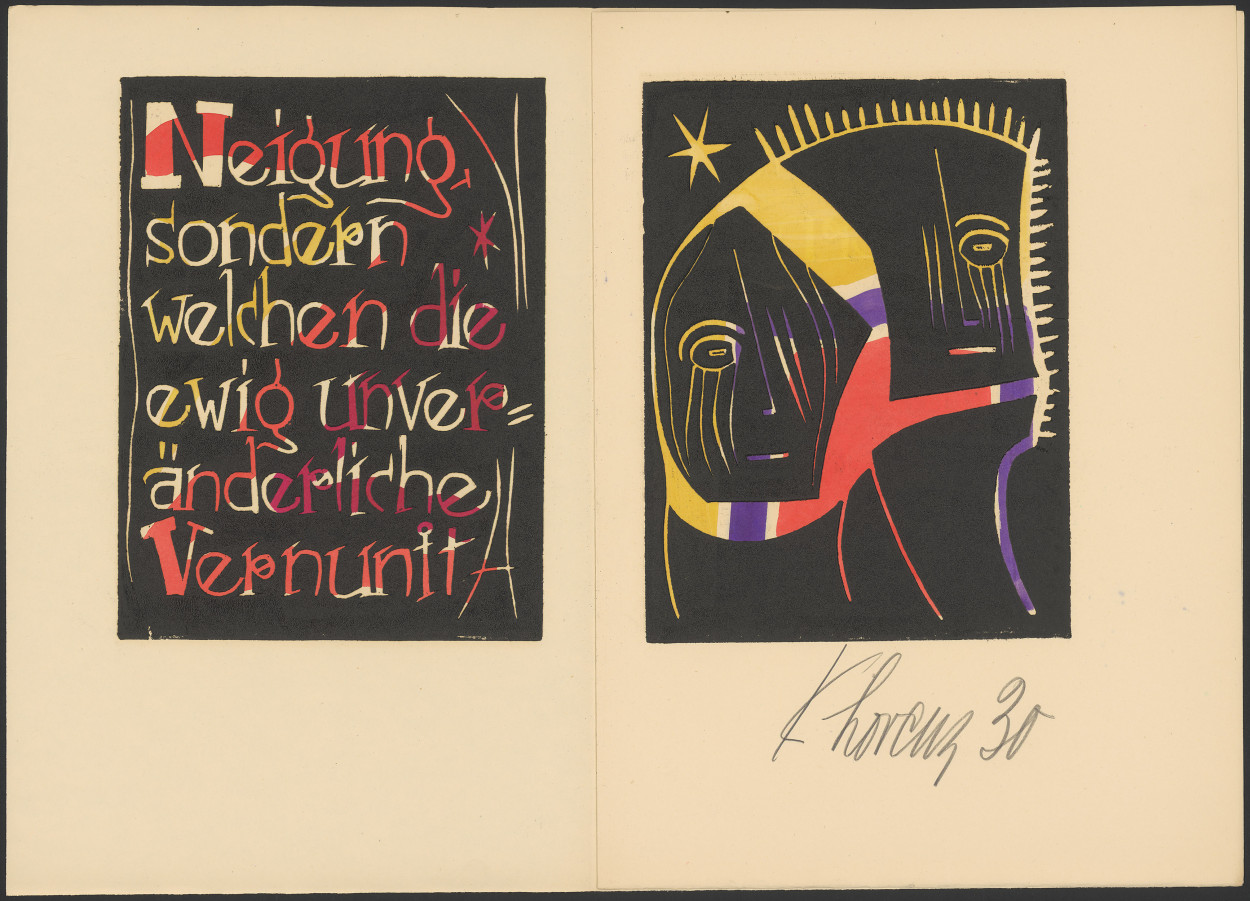 Neigung,
sondern
welchen die
ewig unver=
änderliche
Vernunft
K Lorenz 30